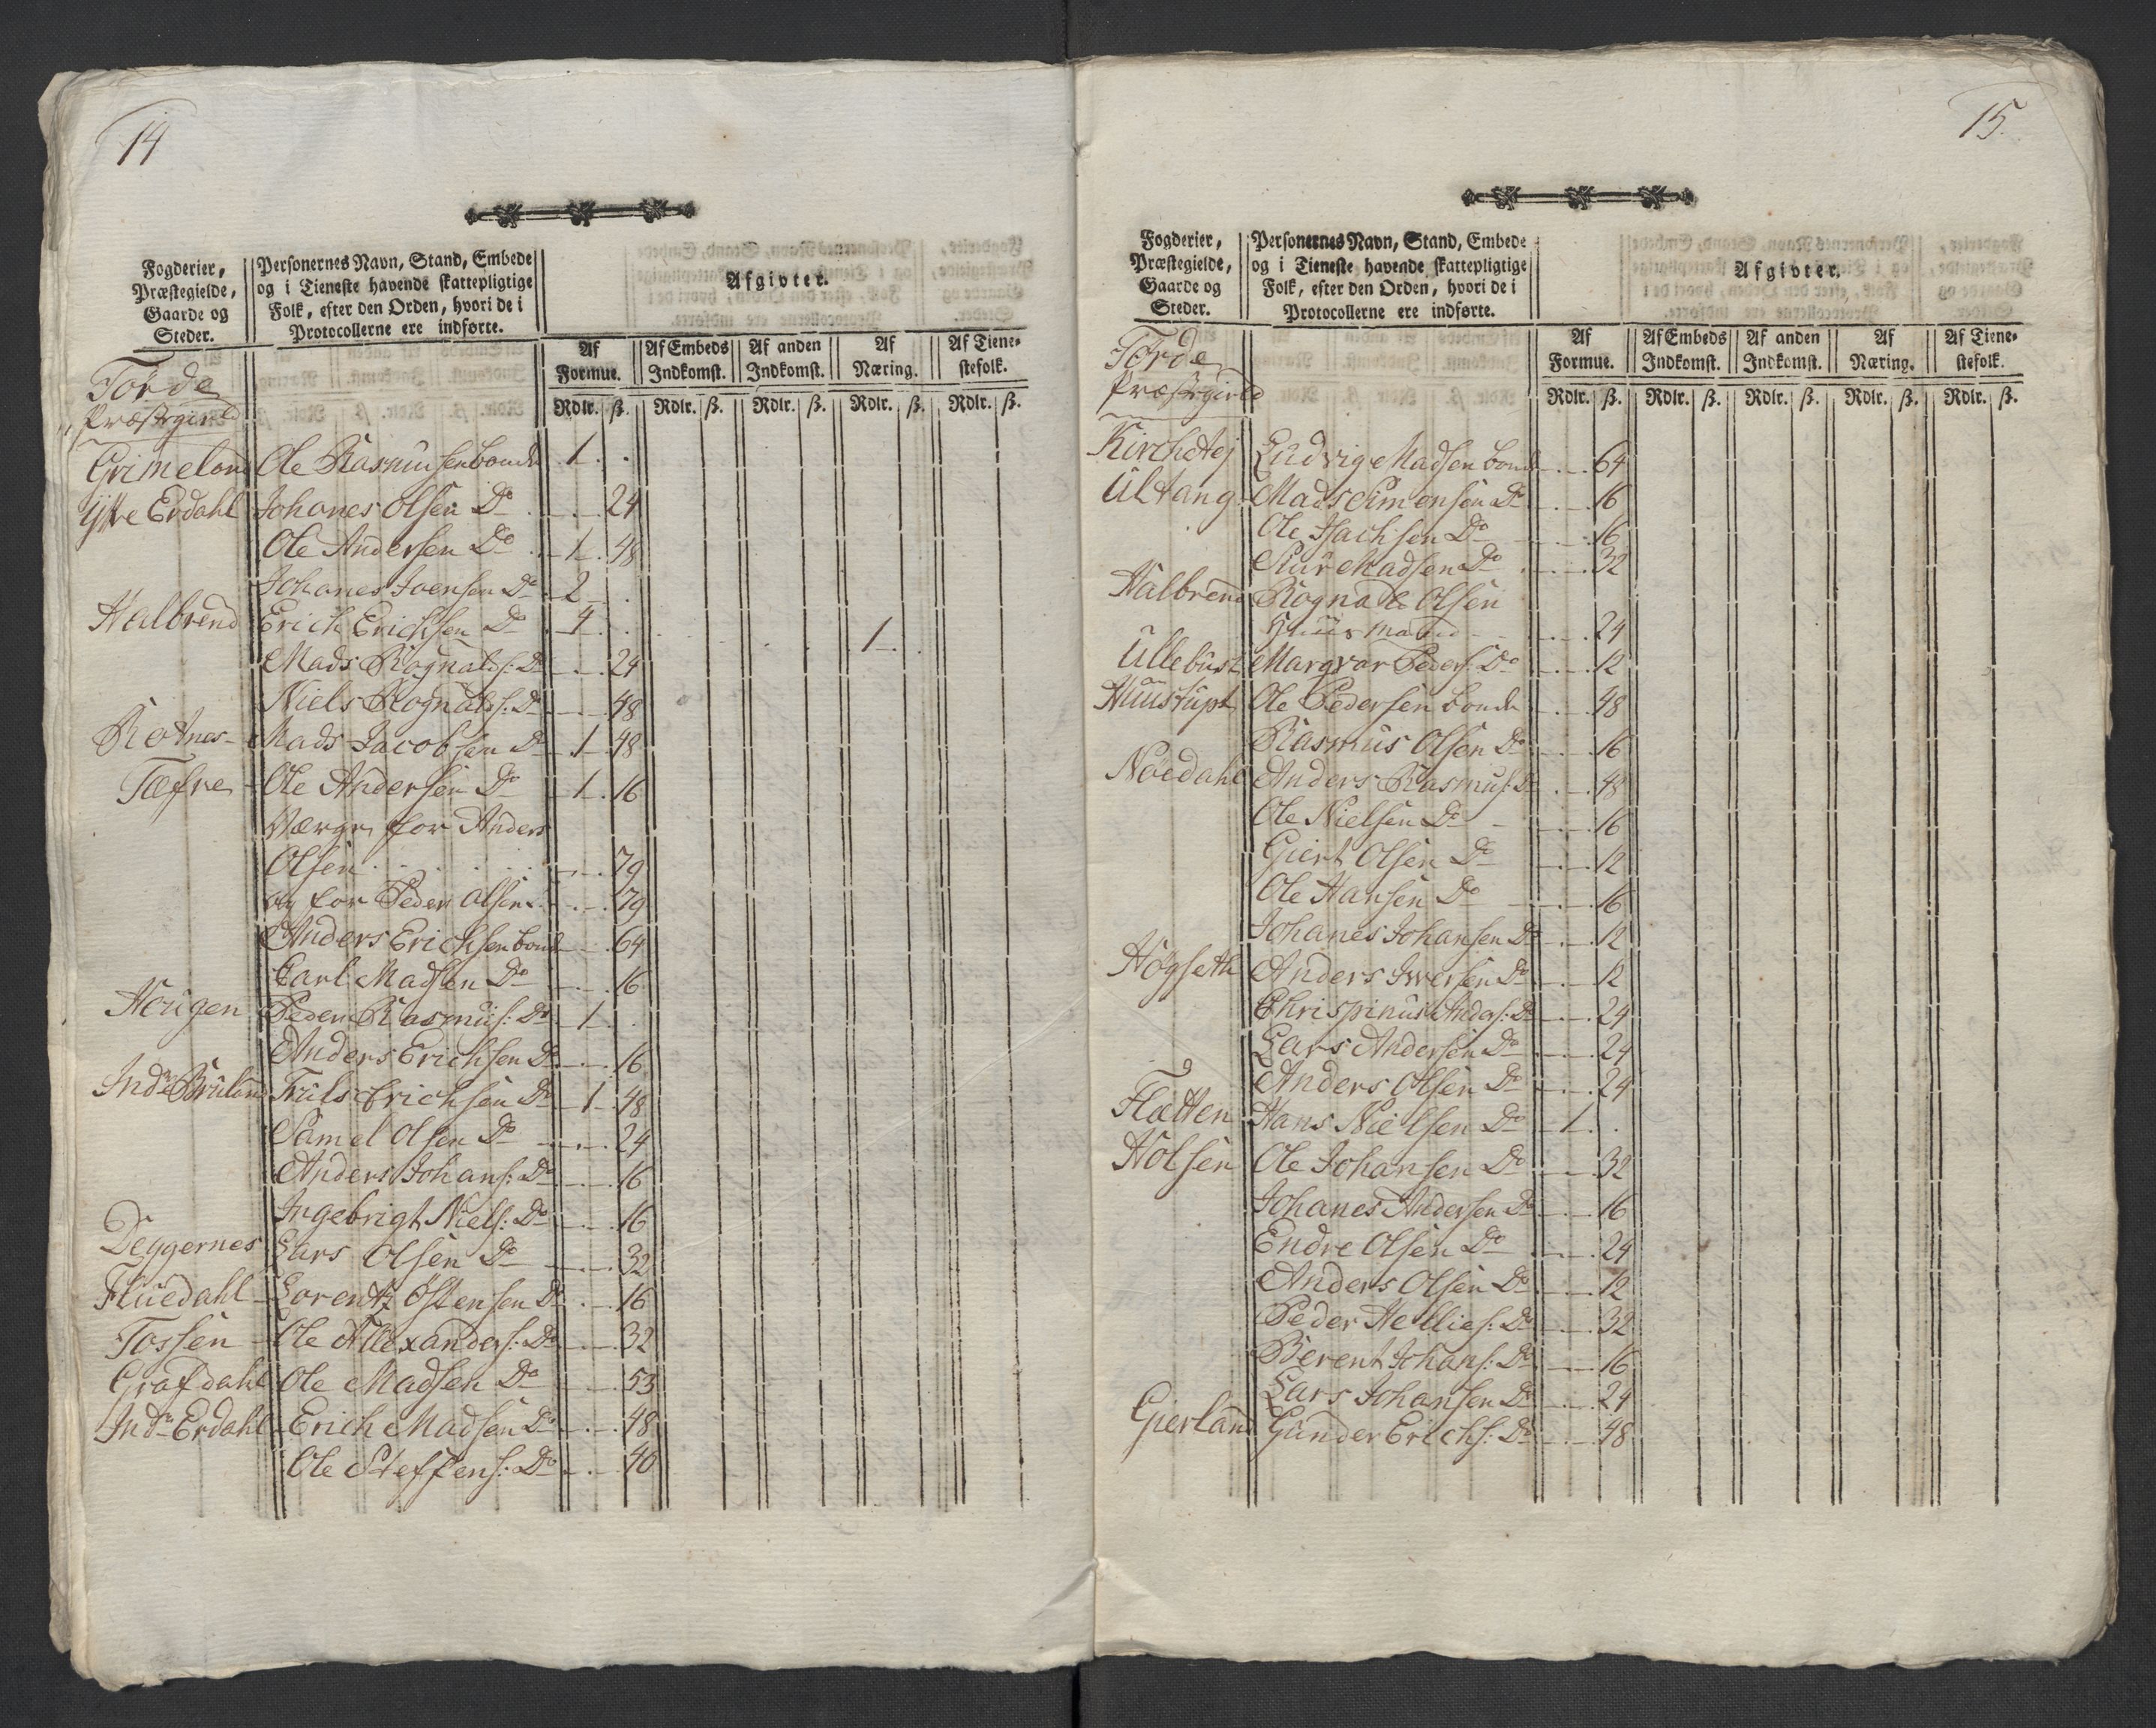 14
Fogderier,
Præstegielde,
Gaarde og
Steder.
Personernes Navn, Stand, Embede
og i Tieneste havende skattepligtige
Folk, efter den Orden, hvori de i
Protocollerne ere indførte.
Afgivter.
Af Formue. Af Embeds Indkomst. Af anden Indkomst. Af Næring. Af Tienestefolk.
Rdlr. ß. Rdlr. ß. Rdlr. ß. Rdlr. ß. Rdlr. ß.
Førde
Præstegield
Grimeland Ole Rasmusen bonde 1
Ytre Erdahl Johanes Olsen Do 24
Ole Andersen Do 1 48
Johanes Joensen Do 2
Halbrend Erich Erichsen Do 4 1
Mads Rognalds: Do 24
Niels Rognalds: Do 48
Rotnes Mads Jacobsen Do 1 48
Tæfre Ole Andersen Do 1 16
Værge for Anders
Olsen 79
og for Peder Olsen 79
Anders Erichsen bonde 64
Carl Madsen Do 16
Hougen Peder Rasmus: Do 1
Anders Erichsen Do 16
Indre Bruland Truls Erichsen Do 1 48
Samel Olsen Do 24
Anders Johans: Do 16
Ingebrigt Niels: Do 16
Deggernes Lars Olsen Do 32
Fluedahl Lorentz Østensen Do 16
Fossen Ole Allexanders: Do 32
Grafdahl Ole Madsen Do 53
Indre Erdahl Erich Madsen Do 48
Ole Steffens: Do 40
15.
Fogderier,
Præstegielde,
Gaarde og
Steder.
Personernes Navn, Stand, Embede
og i Tieneste havende skattepligtige
Folk, efter den Orden, hvori de i
Protocollerne ere indførte.
Afgivter.
Af Formue. Af Embeds Indkomst. Af anden Indkomst. Af Næring. Af Tienestefolk.
Rdlr. ß. Rdlr. ß. Rdlr. ß. Rdlr. ß. Rdlr. ß.
Førde
Præstegield
Ludvig Madsen bonde 64
Ultang Mads Simonsen Do 16
Ole Isachsen Do 16
Siur Madsen Do 32
Halbrend Rognald Olsen
Huusmand 24
Ullebust Marqvar Peders: Do 12
Ole Pedersen bonde 48
Rasmus Olsen Do 16
Noedahl Anders Rasmus: Do 48
Ole Nielsen Do 16
Giert Olsen Do 12
Ole Hansen Do 16
Johanes Johansen Do 12
Høgseth Anders Iversen Do 12
Chrispinus Anders: Do 24
Lars Andersen Do 24
Anders Olsen Do 24
Flatten Hans Nielsen Do 1
Holsen Ole Johansen Do 32
Johanes Andersen Do 16
Endre Olsen Do 24
Anders Olsen Do 12
Peder Hellies: Do 32
Berent Johans: Do 16
Lars Johansen Do 24
Gierland Gunder Erichs: Do 48